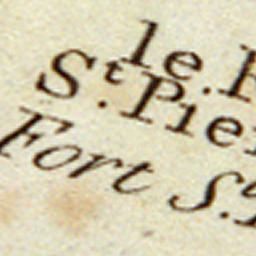 le.
St. Pie
Fort St.